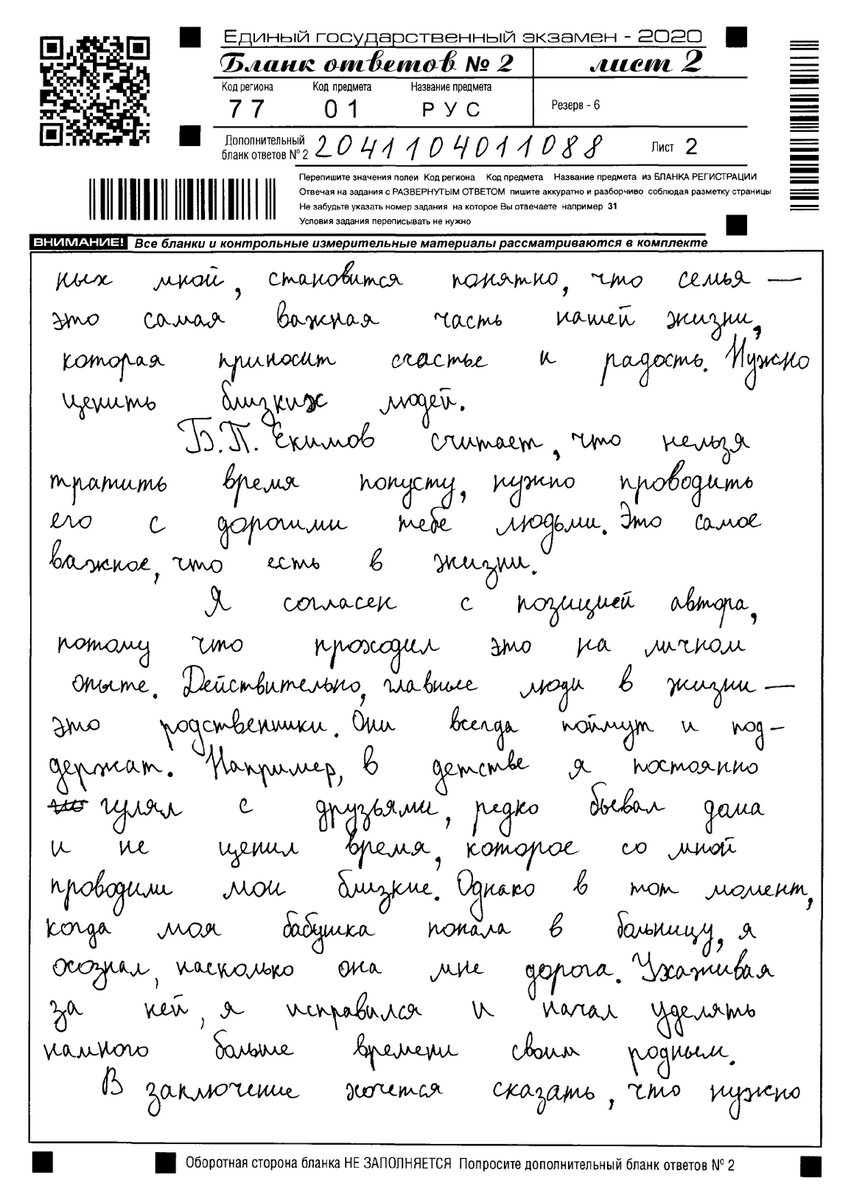 Единый государственный экзамен - 2020
Бланк ответов № 2 лист 2
Код региона Код предмета Название предмета
77 01 РУС Резерв - 6
Дополнительный бланк ответов № 2 2041104011088 Лист 2
Перепишите значения полеи Код региона Код предмета Название предмета из БЛАНКА РЕГИСТРАЦИИ
Отвечая на задания с РАЗВЕРНУТЫМ ОТВЕТОМ пишите аккуратно и разборчиво соблюдая разметку страницы
Не забудьте указать номер задания на которое Вы отвечаете например 31
Условия задания переписывать не нужно
ВНИМАНИЕ! Все бланки и контрольные измерительные материалы рассматриваются в комплекте
ных мной, становится понятно, что семья —
это самая важная часть нашей жизни,
которая приносит счастье и радость. Нужно
ценить близких людей.
Б.П. Екимов считает, что нельзя
тратить время попусту, нужно проводить
его с дорогими тебе людьми. Это самое
важное, что есть в жизни.
Я согласен с позицией автора,
потому что проходил это на личном
опыте. Действительно, главные люди в жизни —
это родственники. Они всегда поймут и под-
держат. Например, в детстве я постоянно
гулял с друзьями, редко бывал дома
и не ценил время, которое со мной
проводили мои близкие. Однако в тот момент,
когда моя бабушка попала в больницу, я
осознал, насколько она мне дорога. Ухаживая
за ней, я исправился и начал уделять
намного больше времени своим родным.
В заключение хочется сказать, что нужно
Оборотная сторона бланка НЕ ЗАПОЛНЯЕТСЯ Попросите дополнительный бланк ответов № 2